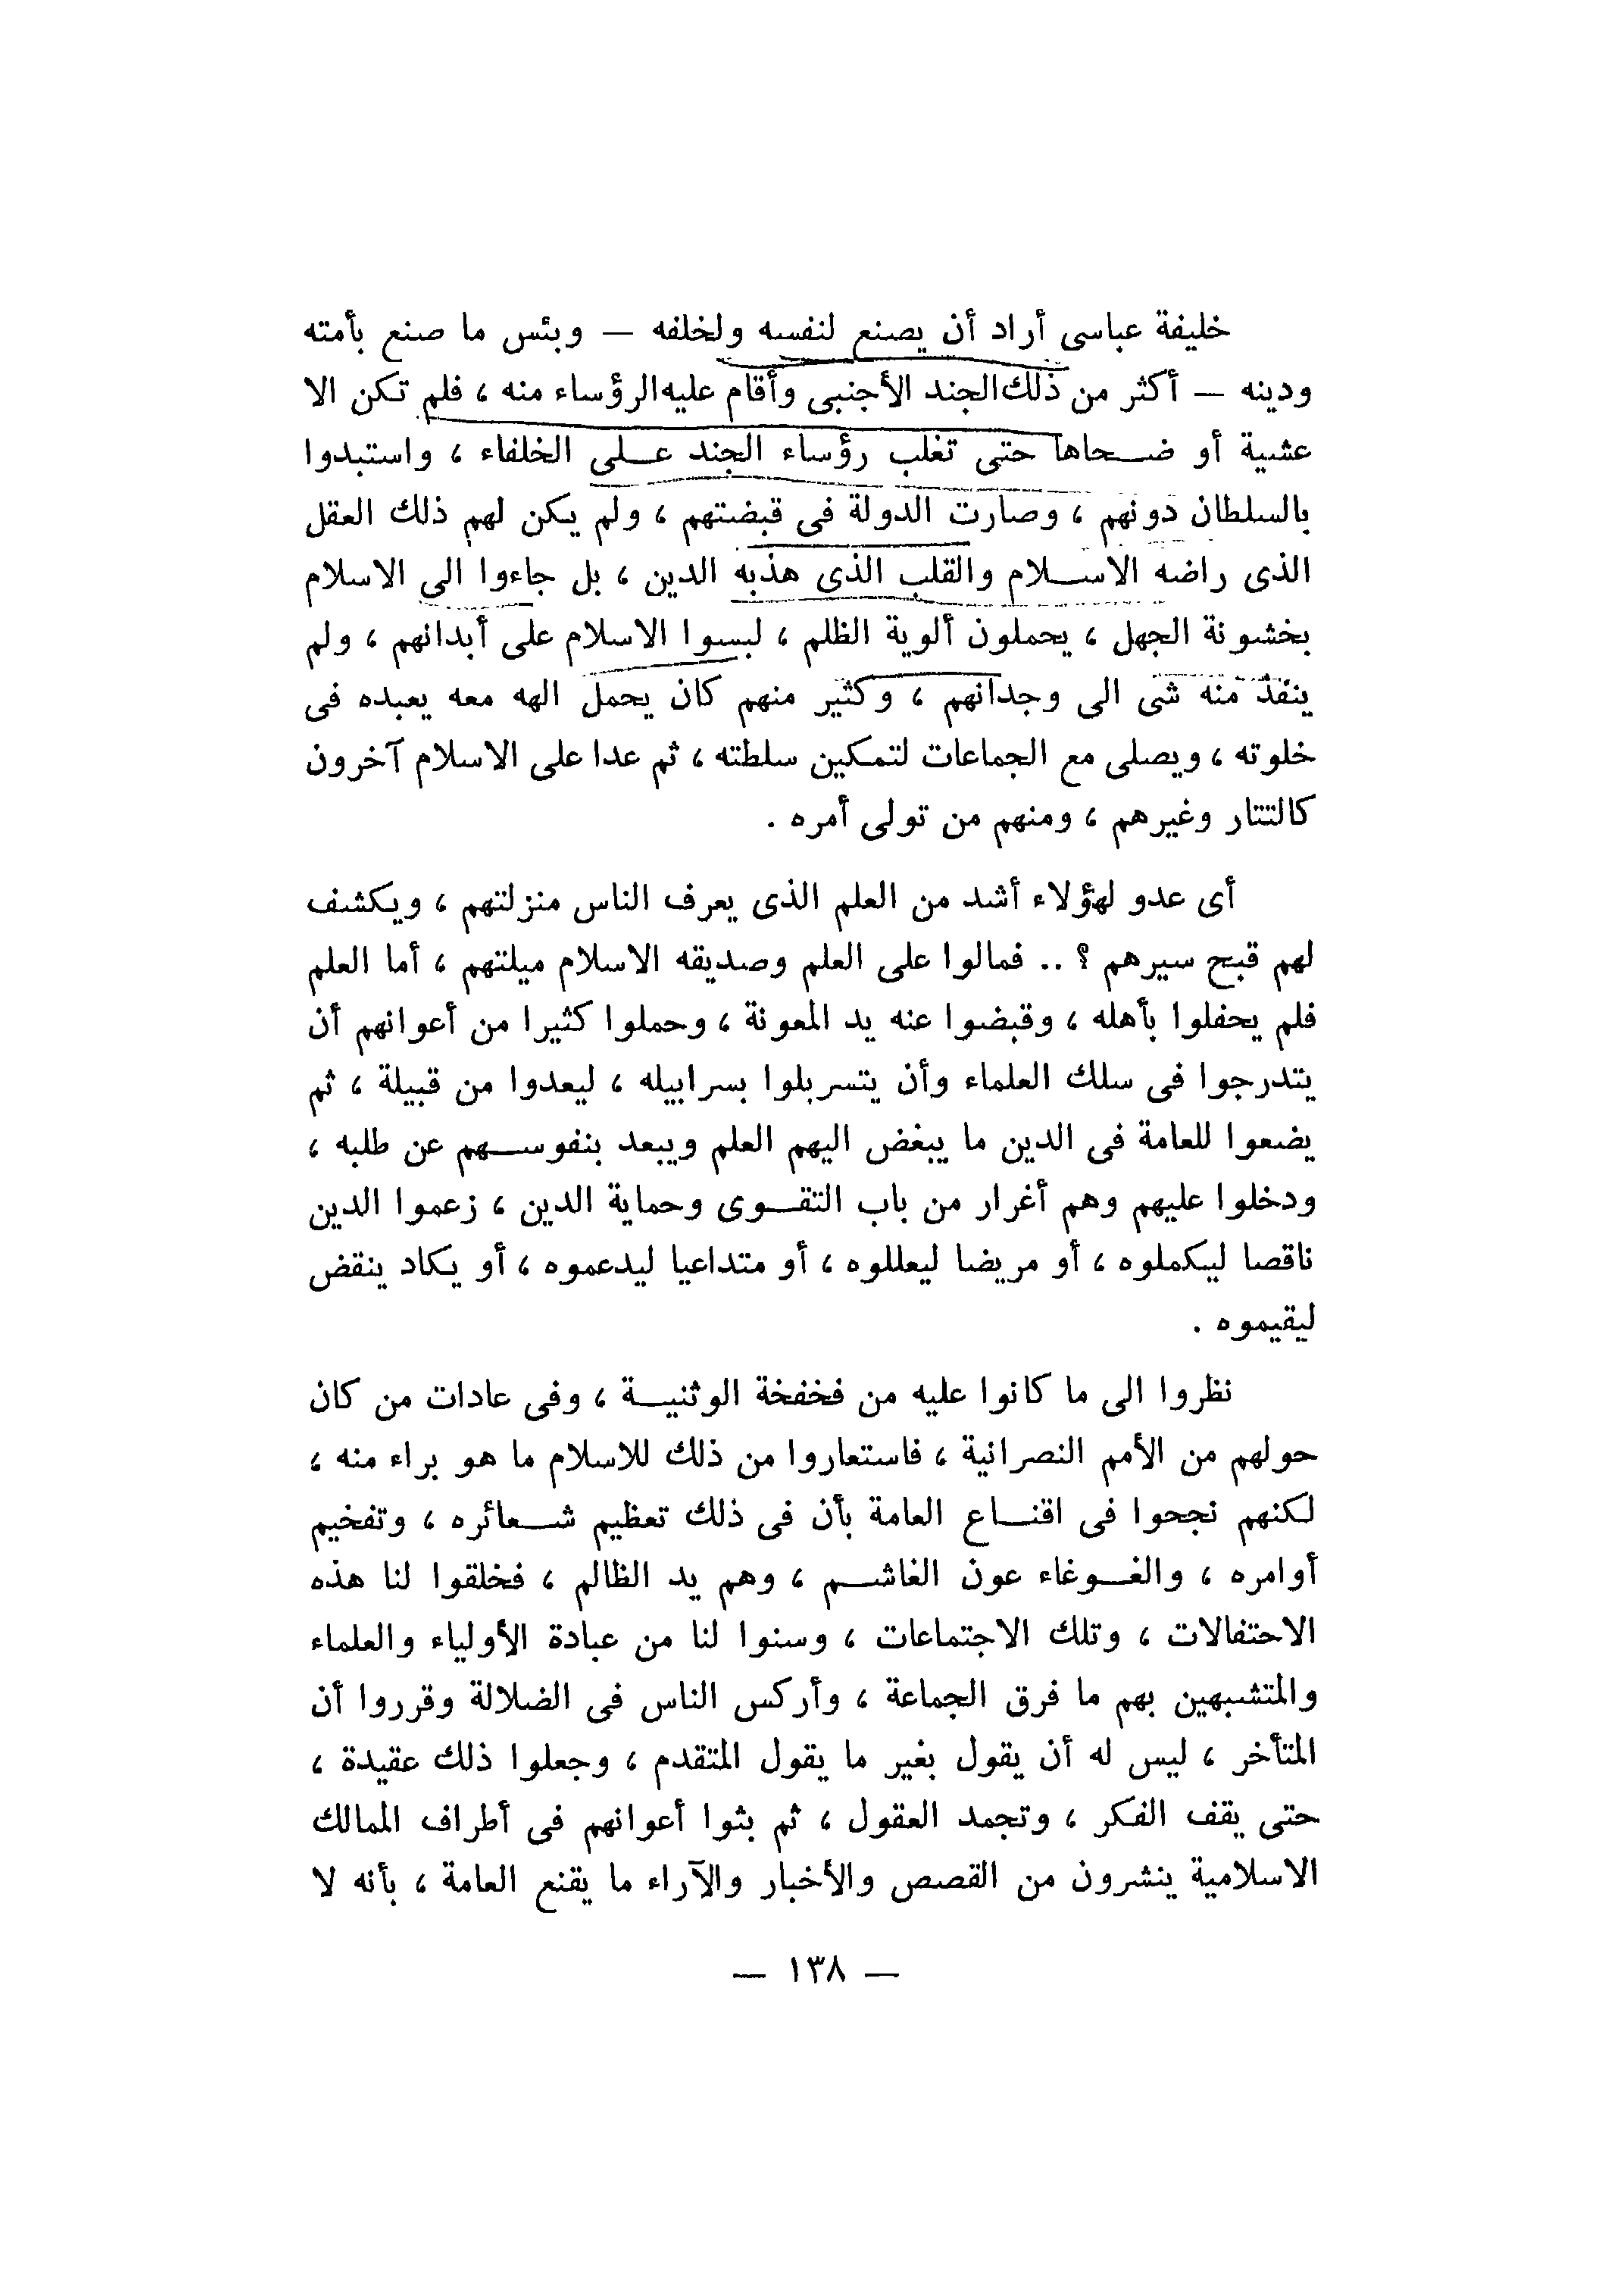 خليفة عباسى أراد أن يصنع لنفسه ولخلفه — وبئس ما صنع بأمته
ودينه — أكثر من ذلك الجند الأجنبى وأقام عليه الرؤساء منه ، فلم تكن الا
عشية أو ضحاها حتى تغلب رؤساء الجند على الخلفاء ، واستبدوا
بالسلطان دونهم ، وصارت الدولة فى قبضتهم ، ولم يكن لهم ذلك العقل
الذى راضه الاسلام والقلب الذى هذبه الدين ، بل جاءوا الى الاسلام
بخشونة الجهل ، يحملون ألوية الظلم ، لبسوا الاسلام على أبدانهم ، ولم
ينفذ منه شى الى وجدانهم ، وكثير منهم كان يحمل الهه معه يعبده فى
خلوته ، ويصلى مع الجماعات لتمكين سلطته ، ثم عدا على الاسلام آخرون
كالتتار وغيرهم ، ومنهم من تولى أمره .
أى عدو لهؤلاء أشد من العلم الذى يعرف الناس منزلتهم ، ويكشف
لهم قبح سيرهم ؟ .. فمالوا على العلم وصديقه الاسلام ميلتهم ، أما العلم
فلم يحفلوا بأهله ، وقبضوا عنه يد المعونة ، وحملوا كثيرا من أعوانهم أن
يتدرجوا فى سلك العلماء وأن يتسربلوا بسرابيله ، ليعدوا من قبيلة ، ثم
يضعوا للعامة فى الدين ما يبغض اليهم العلم ويبعد بنفوسهم عن طلبه ،
ودخلوا عليهم وهم أغرار من باب التقوى وحماية الدين ، زعموا الدين
ناقصا ليكملوه ، أو مريضا ليعللوه ، أو متداعيا ليدعموه ، أو يكاد ينقض
ليقيموه .
نظروا الى ما كانوا عليه من فخفخة الوثنية ، وفى عادات من كان
حولهم من الأمم النصرانية ، فاستعاروا من ذلك للاسلام ما هو براء منه ،
لكنهم نجحوا فى اقناع العامة بأن فى ذلك تعظيم شعائره ، وتفخيم
أوامره ، والغوغاء عون الغاشم ، وهم يد الظالم ، فخلقوا لنا هذه
الاحتفالات ، وتلك الاجتماعات ، وسنوا لنا من عبادة الأولياء والعلماء
والمتشبهين بهم ما فرق الجماعة ، وأركس الناس فى الضلالة وقرروا أن
المتأخر ، ليس له أن يقول بغير ما يقول المتقدم ، وجعلوا ذلك عقيدة ،
حتى يقف الفكر ، وتجمد العقول ، ثم بثوا أعوانهم فى أطراف الممالك
الاسلامية ينشرون من القصص والأخبار والآراء ما يقنع العامة ، بأنه لا
— ١٣٨ —